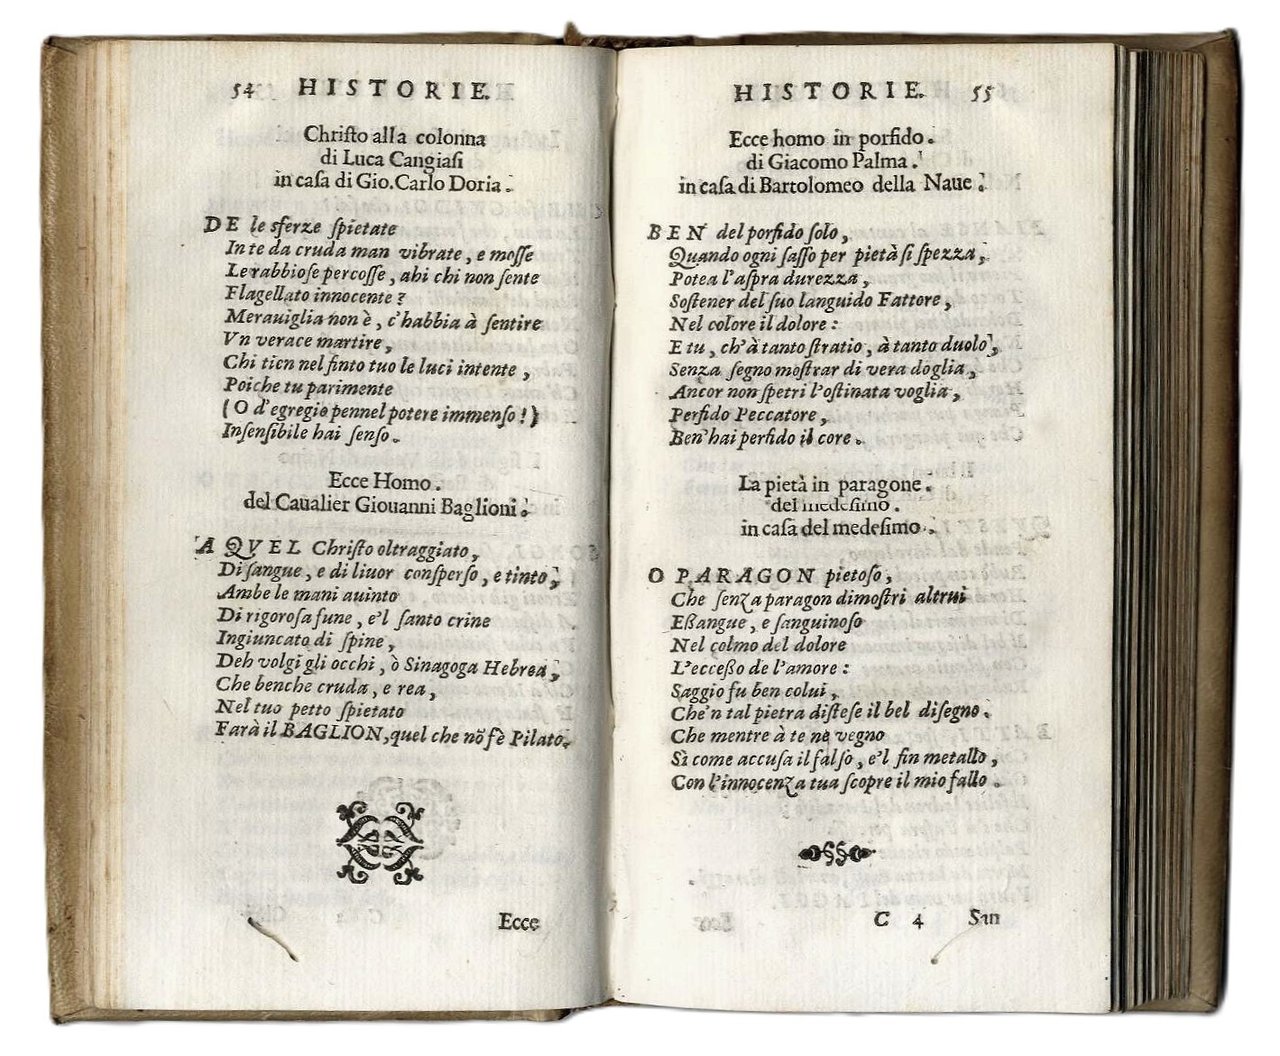 54 HISTORIE.
Chriſto alla colonna
di Luca Cangiaſi
in caſa di Gio. Carlo Doria.
DE le sferze ſpietate
In te da cruda man vibrate, e moſſe
Le rabbioſe percoſſe, ahi chi non ſente
Flagellato innocente?
Merauiglia non è, c'habbia à ſentire
Vn verace martire,
Chi tien nel finto tuo le luci intente,
Poiche tu parimente
(O d'egregio pennel potere immenſo!)
Inſenſibile hai ſenſo.
Ecce Homo.
del Caualier Giouanni Baglioni.
A QVEL Chriſto oltraggiato,
Di ſangue, e di liuor conſperſo, e tinto,
Ambe le mani auinto
Di rigoroſa fune, e'l ſanto crine
Ingiuncato di ſpine,
Deh volgi gli occhi, ò Sinagoga Hebrea,
Che benche cruda, e rea,
Nel tuo petto ſpietato
Farà il BAGLION, quel che nõ fè Pilato.
Ecce
HISTORIE. 55
Ecce homo in porfido.
di Giacomo Palma.
in caſa di Bartolomeo della Naue.
BEN del porfido ſolo,
Quando ogni ſaſſo per pietà ſi ſpezza,
Potea l'aſpra durezza,
Soſtener del ſuo languido Fattore,
Nel colore il dolore:
E tu, ch'à tanto ſtratio, à tanto duolo,
Senza ſegno moſtrar di vera doglia,
Ancor non ſpetri l'oſtinata voglia,
Perfido Peccatore,
Ben' hai perfido il core.
La pietà in paragone.
del medeſimo.
in caſa del medeſimo.
O PARAGON pietoſo,
Che ſenza paragon dimoſtri altrui
Eßangue, e ſanguinoſo
Nel colmo del dolore
L'ecceßo de l'amore:
Saggio fu ben colui,
Che'n tal pietra diſteſe il bel diſegno.
Che mentre à te ne vegno
Sì come accuſa il falſo, e'l fin metallo,
Con l'innocenza tua ſcopre il mio fallo.
C 4 San